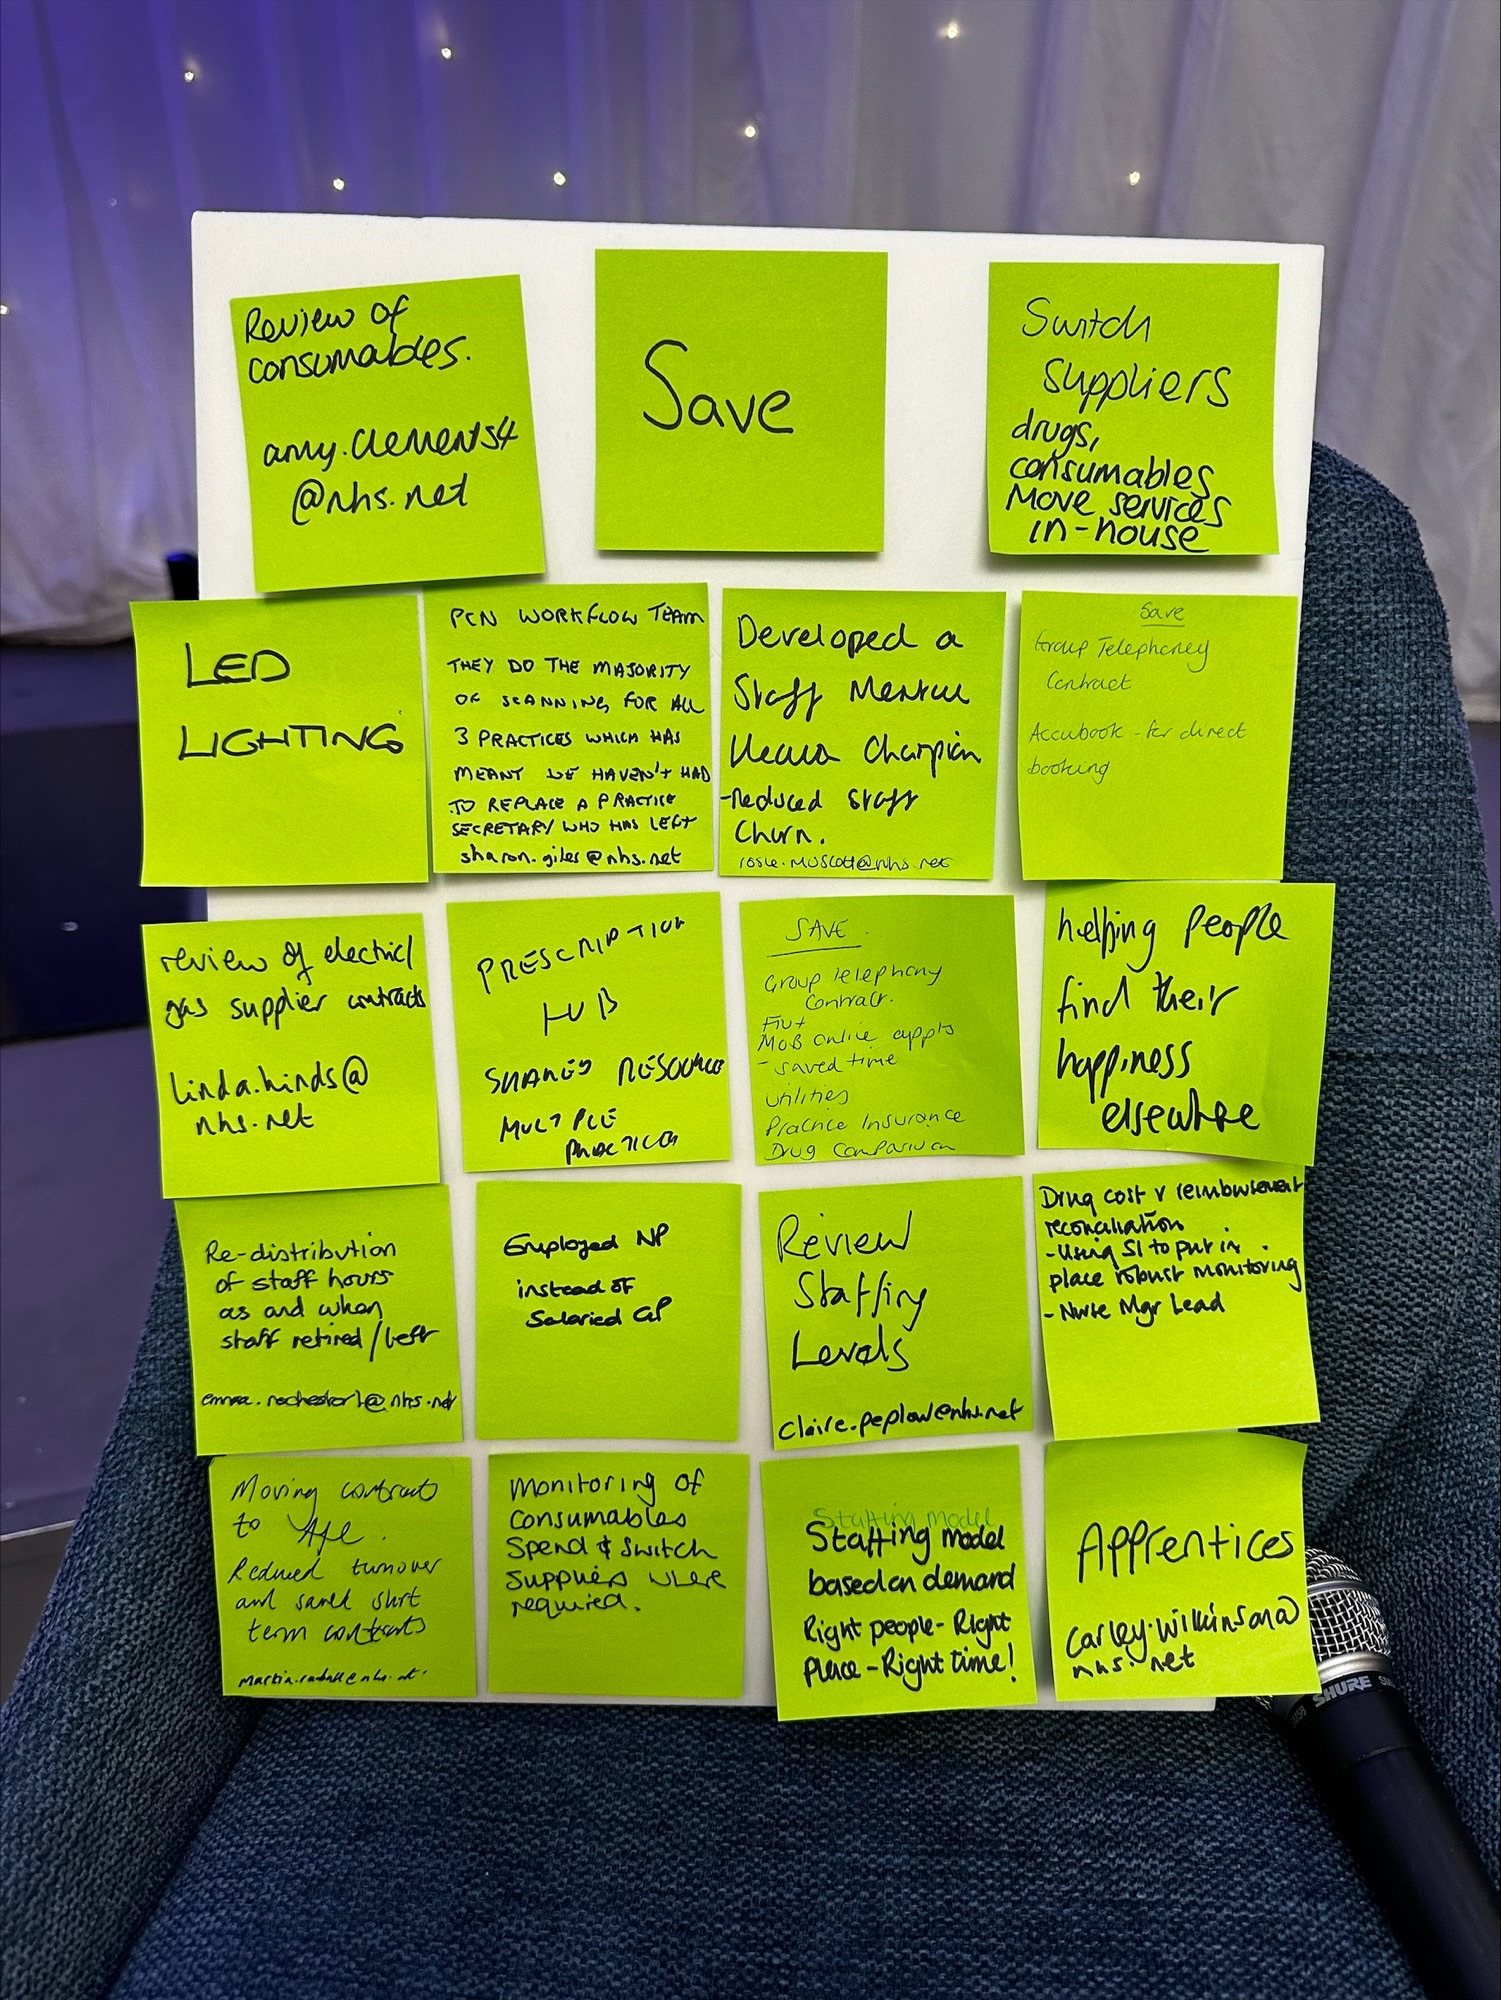 Review of
consumables.
amy.clements4
@nhs.net
Save
Switch
suppliers
drugs,
consumables
Move services
in-house
LED
LIGHTING
PCN WORKFLOW TEAM
THEY DO THE MAJORITY
OF SCANNING FOR ALL
3 PRACTICES WHICH HAS
MEANT WE HAVEN'T HAD
TO REPLACE A PRACTICE
SECRETARY WHO HAS LEFT
sharon.giles@nhs.net
Developed a
Staff Mental
Health Champion
-reduced staff
churn.
rosie.muscott@nhs.net
Save
Group Telephoney
Contract
Accubook - for direct
booking
review of electric/
gas supplier contracts
linda.hinds@
nhs.net
PRESCRIPTION
HUB
SHARED RESOURCE
MULTIPLE
PRACTICES
SAVE.
Group telephony
Contract.
Flu +
MoB online appts
- saved time
utilities
Practice Insurance
Drug Comparison
helping people
find their
happiness
elsewhere
Re-distribution
of staff hours
as and when
staff retired/left
emma.rochester1@nhs.net
Employed NP
instead of
Salaried GP
Review
Staffing
Levels
claire.peplow@nhs.net
Drug cost v reimbursement
reconciliation
- Using SI to put in
place robust monitoring
- Nurse Mgr Lead
Moving contracts
to AfC.
Reduced turnover
and saved short
term contracts
@nhs.net
Monitoring of
consumables
spend & switch
suppliers where
required.
Staffing model
Staffing model
based on demand
Right people - Right
place - Right time!
Apprentices
carley.wilkinson@
nhs.net
SHURE